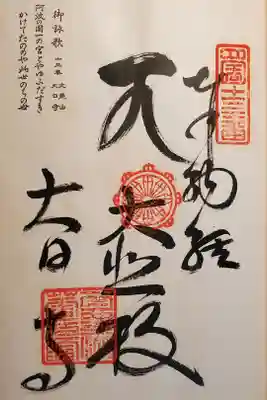 四国十三番
奉納経
大悲殿
大日寺
御詠歌
十三番 大栗山
大日寺
阿波の国一の宮とやゆふだすき
かけてたのめや此世のちの世